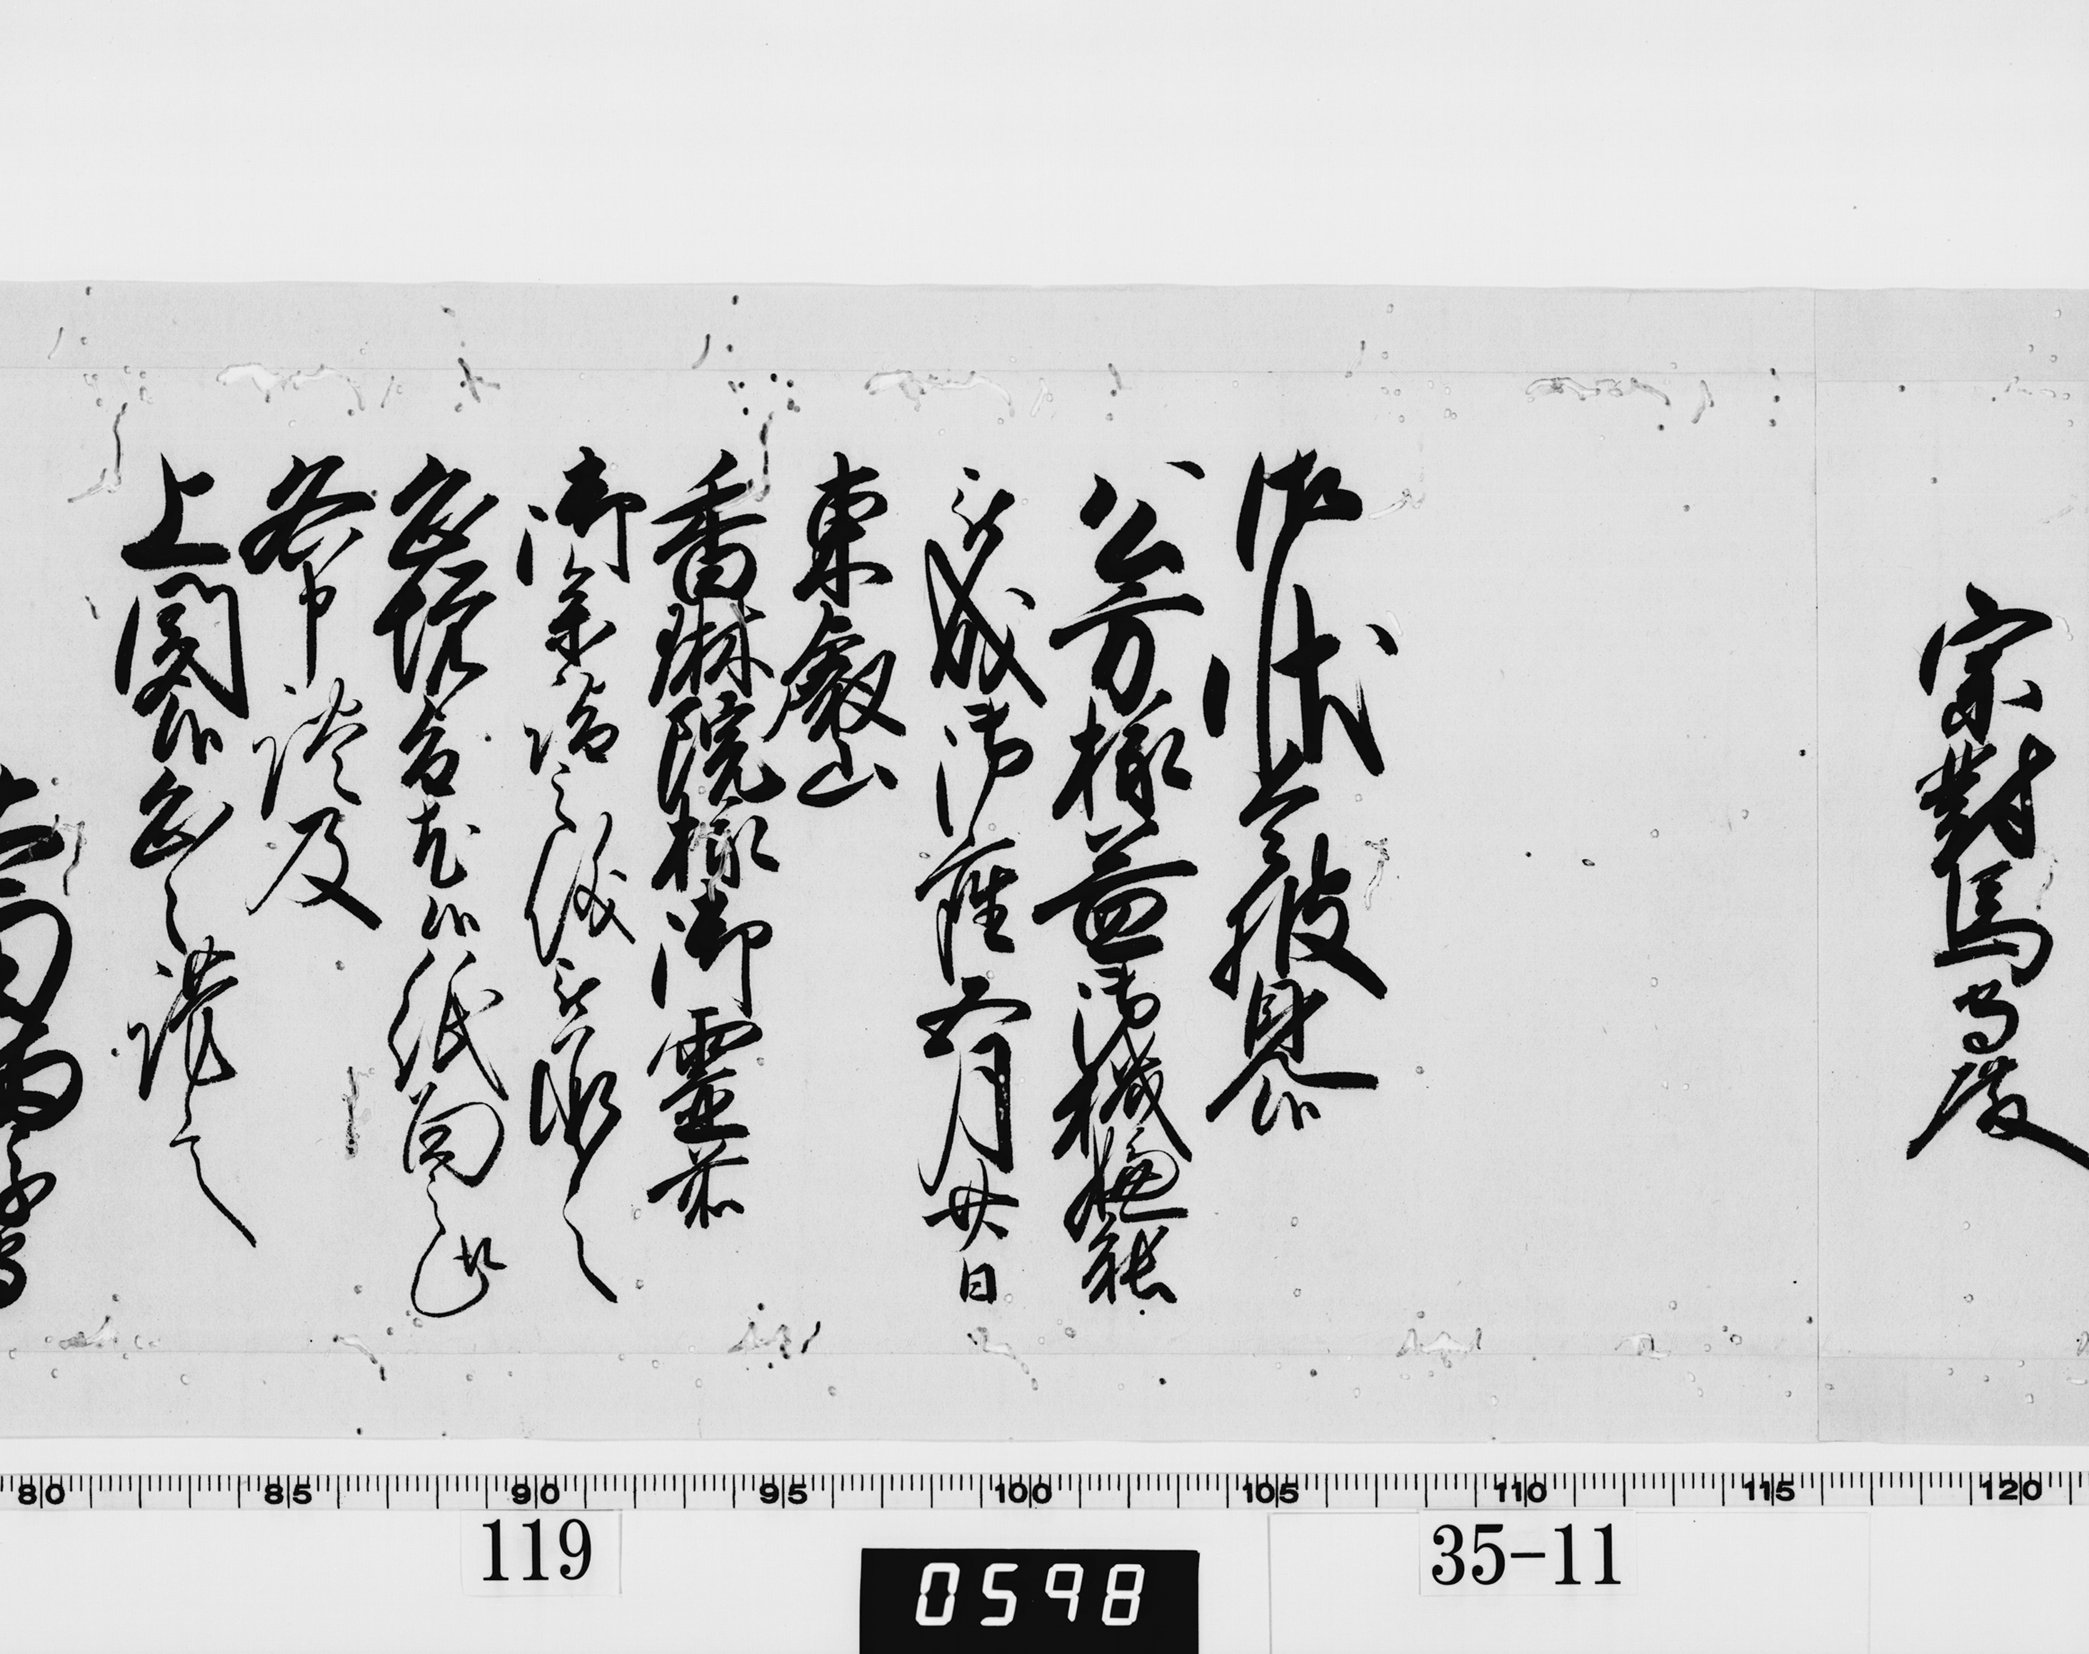 宗對馬守殿
御状令披見候
公方様益御機嫌能
被成御座五月廿日
東叡山
香琳院様御霊前
御参詣之儀被承之
恐悦旨尤候紙面之趣
各申談及
上聞候恐々謹言
119
0598
35-11
80 85 90 95 100 105 110 115 120